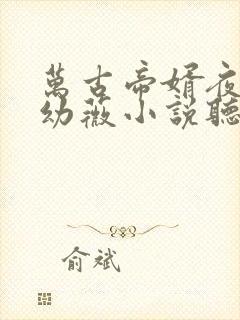 萬古帝婿夜
幼薇小說聽
俞斌